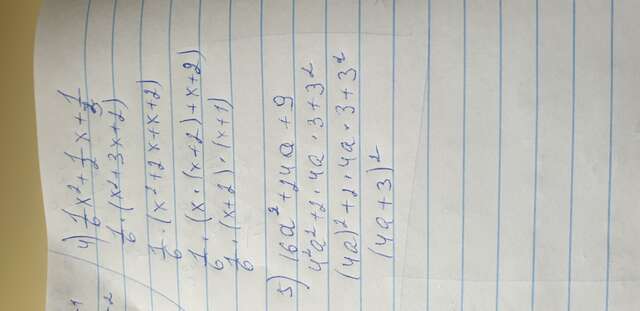 4) 1/6 x² + 1/2 x + 1/3
1/6 · (x² + 3x + 2)
1/6 · (x² + 2x + x + 2)
1/6 · (x · (x + 2) + x + 2)
1/6 · (x + 2) · (x + 1)
5) 16a² + 24a + 9
4²a² + 2 · 4a · 3 + 3²
(4a)² + 2 · 4a · 3 + 3²
(4a + 3)²